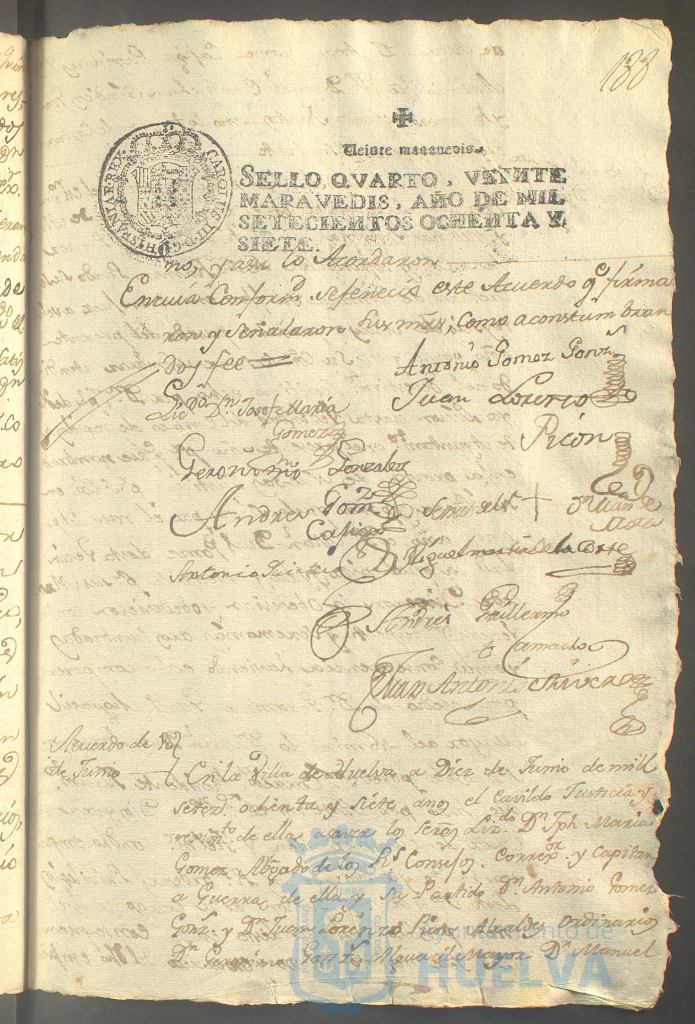 188
Veinte maravedis.
SELLO QVARTO, VEINTE
MARAVEDIS, AÑO DE MIL
SETECIENTOS OCHENTA Y
SIETE.
CAROLUS III D.G. HISPANIAR. REX
no, y asi lo Acordaron
En cuia Conformd. se fenecio este Acuerdo qe firma
ron y señalaron sus mrds, como acostumbran
Doy fee =
Antonio Gomez Gonzs
Licdo Dn Josef Maria
Gomez
Juan Lorenzo
Picón
Geronimo Gonzalez
Andres Gomz
Casiga
Señal del Sr + Dn Juan de
Mora
Antonio Quintero
Miguel Martin de la Corte
Andres Guillermo
Camacho
Juan Antonio
Acuerdo de 10
de Junio
En la Villa de Huelva a Diez de Junio de mill
setezs ochenta y siete años el Cavildo Justicia y
regimto de ella asaver los Señs Lizdo Dn Jph Maria
Gomez Abogado de los Rs Consejos Correxor y Capitan
a Guerra de ella y su Partido Dn Antonio Gomez
Gonzs y Dn Juan Lorenzo Picon Alcaldes Ordinarios
Dn Geronimo Gonzs Alguacil Mayor Dn Manuel
Ayuntamiento de
HUELVA